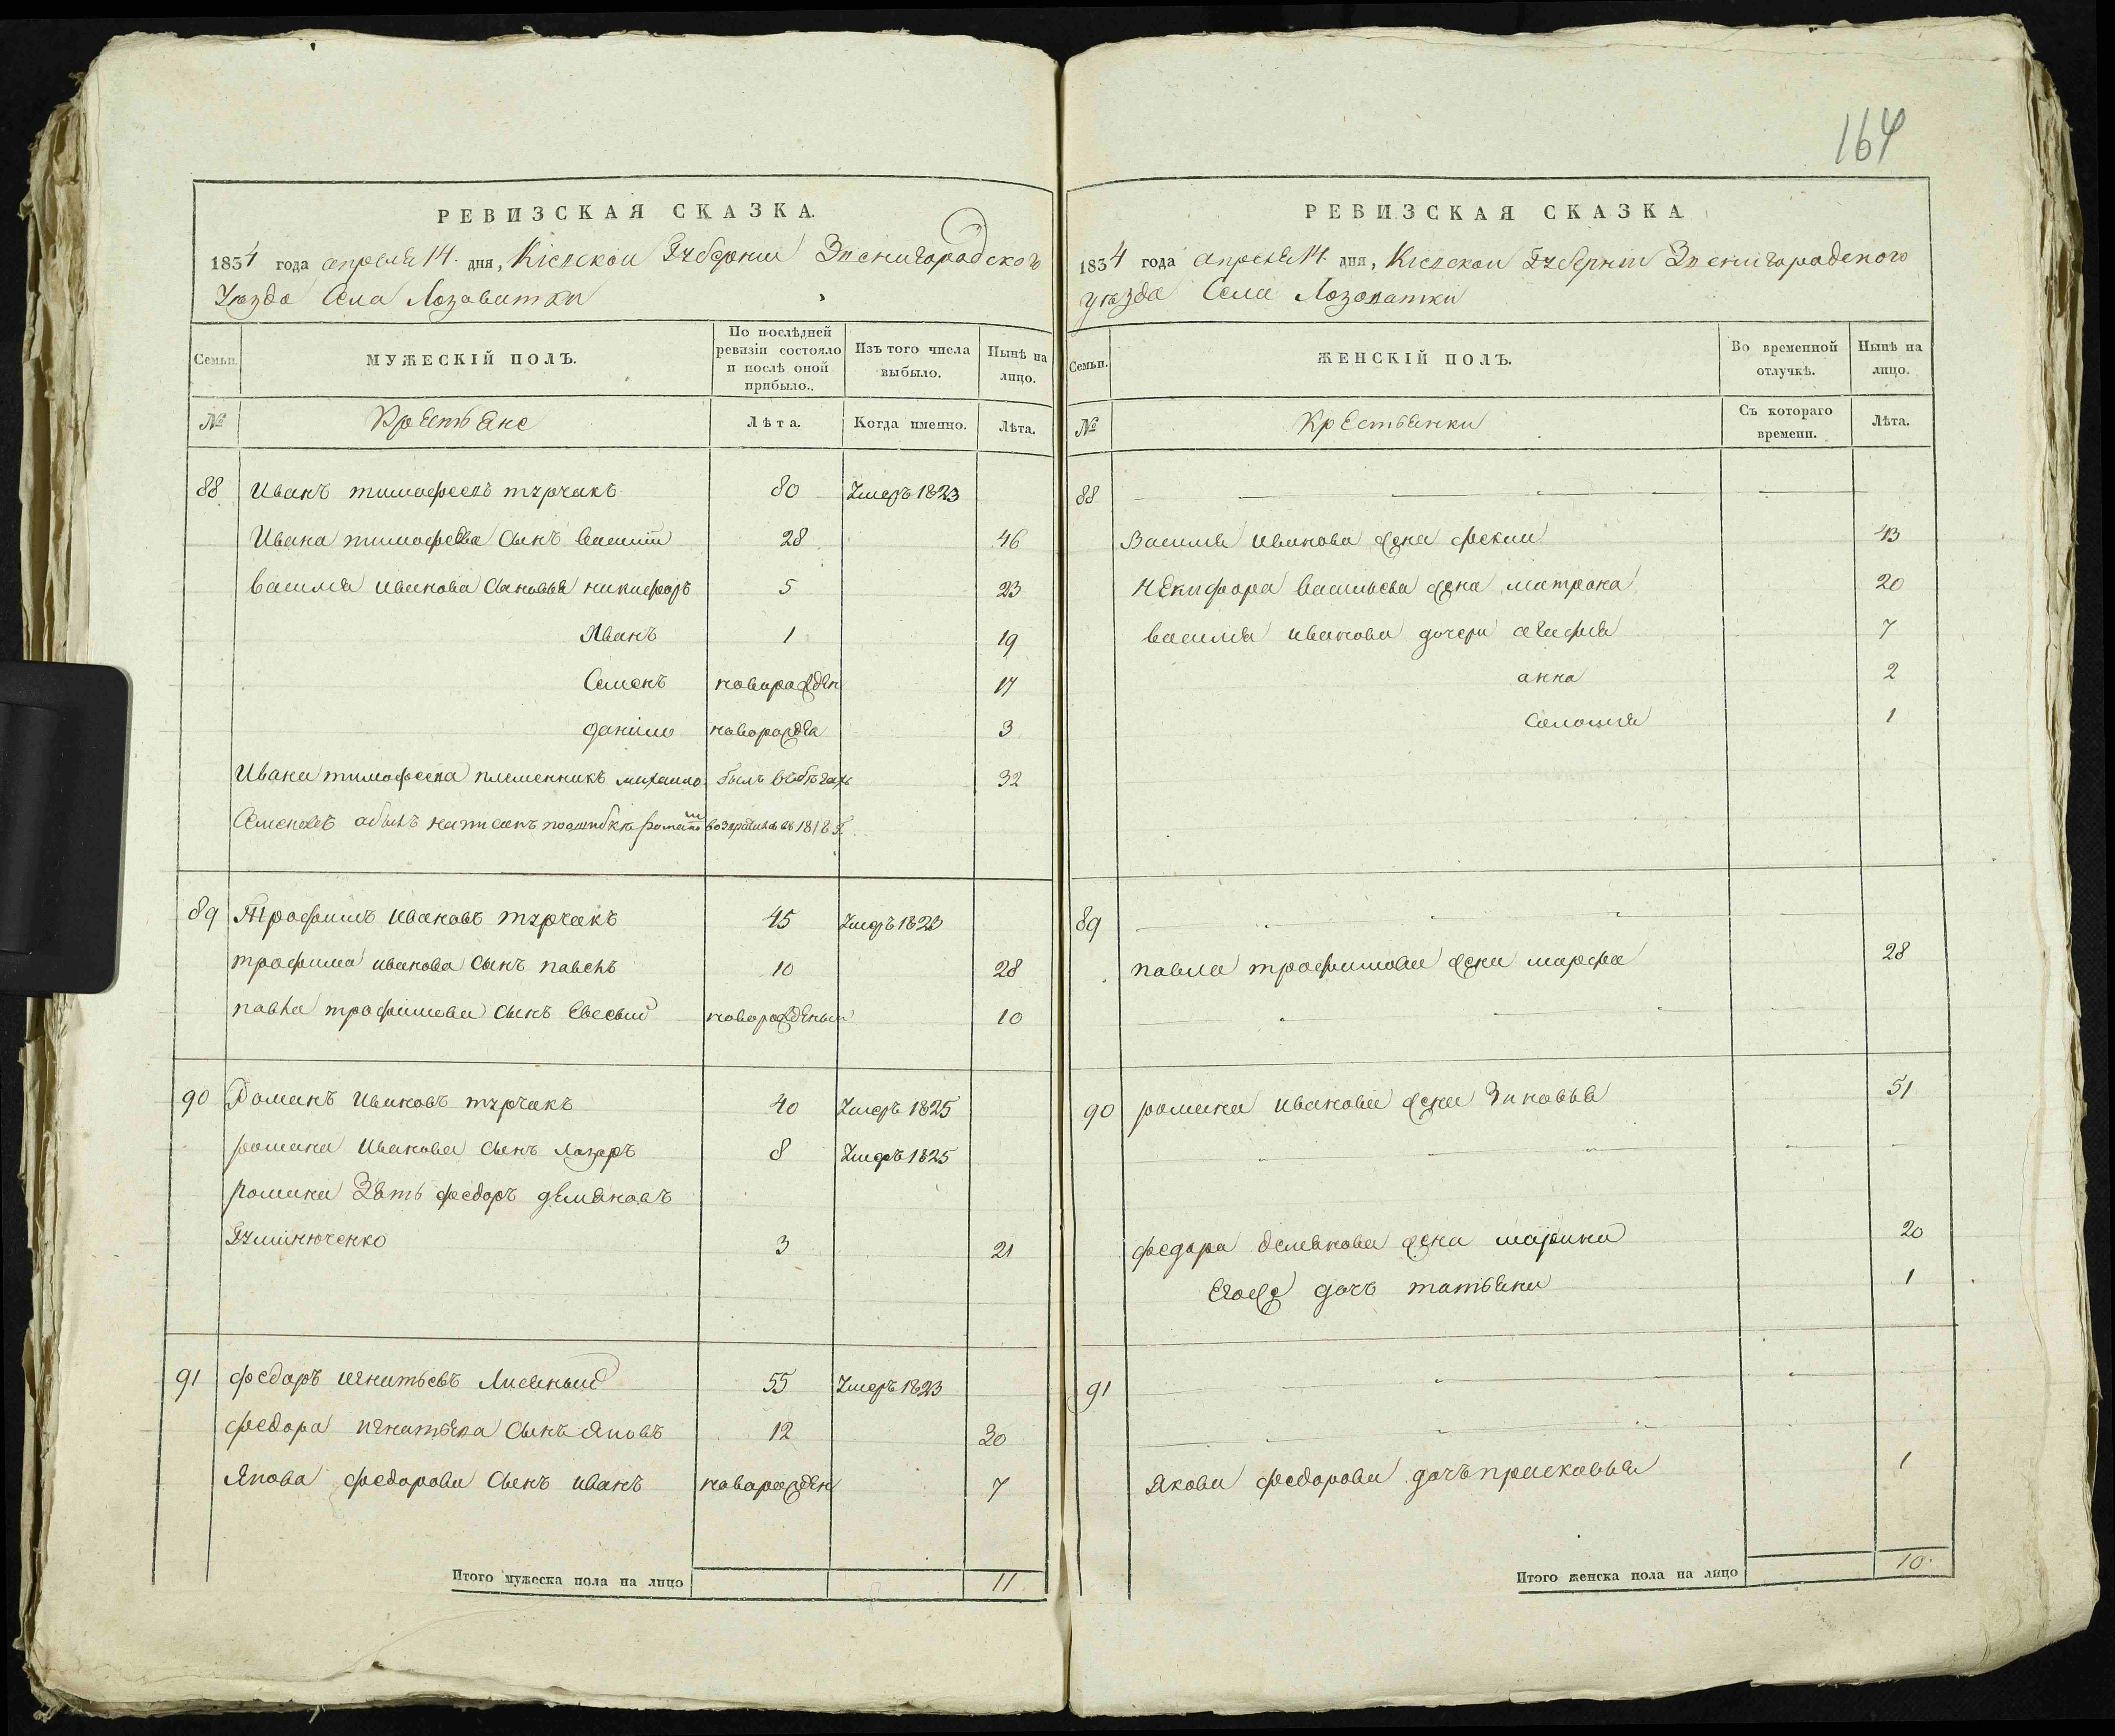 164
РЕВИЗСКАЯ СКАЗКА.
1834 года апреля 14. дня, Кіевской Губернии Звенигородского
Уезда Села Лозоватки
Семьи.
МУЖЕСКІЙ ПОЛЪ.
По послѣдней ревизіи состояло и послѣ оной прибыло.
Изъ того числа выбыло.
Нынѣ на лицо.
№
Крестьяне
Лѣта.
Когда именно.
Лѣта.
88 Иванъ тимофеевъ турчакъ 80 Умеръ 1823
Ивана тимофеева Сынъ василий 28 46
василя иванова Сыновья никифоръ 5 23
Иванъ 1 19
Семенъ новорожден 17
даніло новорожде 3
Ивана тимофеева племенникъ михайло былъ в побегахъ 32
Семеновъ написанъ возвратился въ 1818 г.
89 Трофимъ ивановъ турчакъ 45 Умеръ 1823
трофима иванова Сынъ павелъ 10 28
павла трофимова Сынъ Евсевий новорожденый 10
90 Романъ Ивановъ турчакъ 40 Умеръ 1825
романа Иванова Сынъ Лазаръ 8 Умеръ 1825
Романа Зять федоръ демяновъ
3 21
91 федоръ игнатьевъ 55 Умеръ 1823
федора игнатьева Сынъ Яковъ 12 30
Якова федорова Сынъ иванъ новорожден 7
Итого мужеска пола на лицо 11
РЕВИЗСКАЯ СКАЗКА
1834 года апреля 14. дня, Кіевской Губернии Звенигородского
уезда Села Лозоватки
Семьи.
ЖЕНСКІЙ ПОЛЪ.
Во временной отлучкѣ.
Нынѣ на лицо.
№
Крестьянки
Съ котораго времени.
Лѣта.
88
Василя иванова жена фекла 43
Некифора васильева жена матрона 20
василя иванова дочери агафия 7
анна 2
Соломия 1
89
павла трофимова жена марфа 28
90 романа иванова жена Зиновья 51
федора демянова жена марина 20
Егоже дочъ татьяна 1
91
Якова федорова дочъ прасковья 1
Итого женска пола на лицо 10.